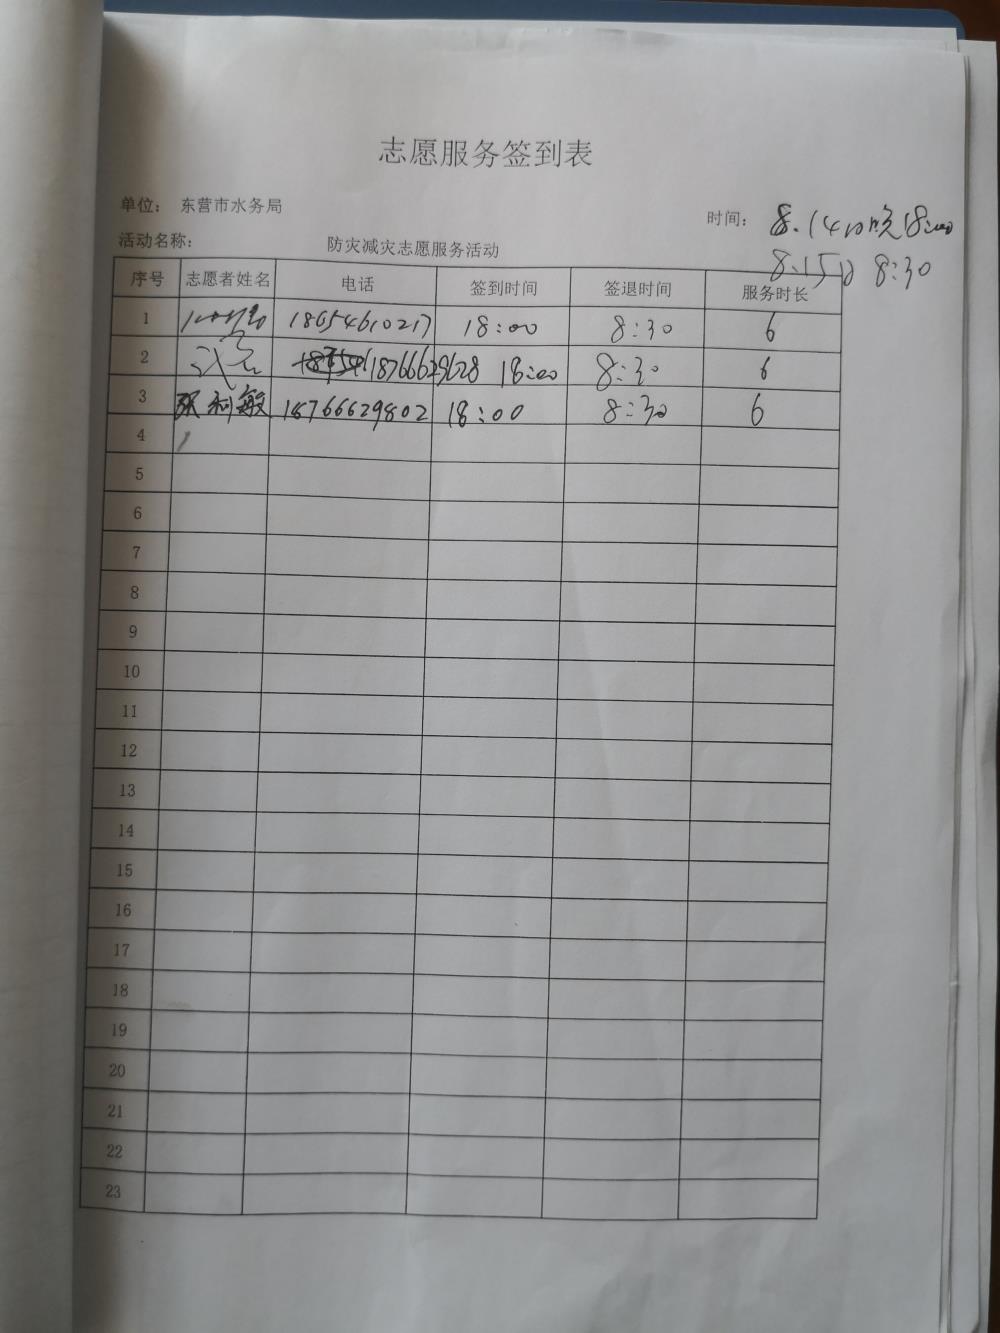 志愿服务签到表
单位： 东营市水务局 时间： 8.14日晚18:00
8.15日 8:30
活动名称： 防灾减灾志愿服务活动
序号 志愿者姓名 电话 签到时间 签退时间 服务时长
1 18654610217 18:00 8:30 6
2 18766629628 18:00 8:30 6
3 张利敏 18766629802 18:00 8:30 6
4
5
6
7
8
9
10
11
12
13
14
15
16
17
18
19
20
21
22
23